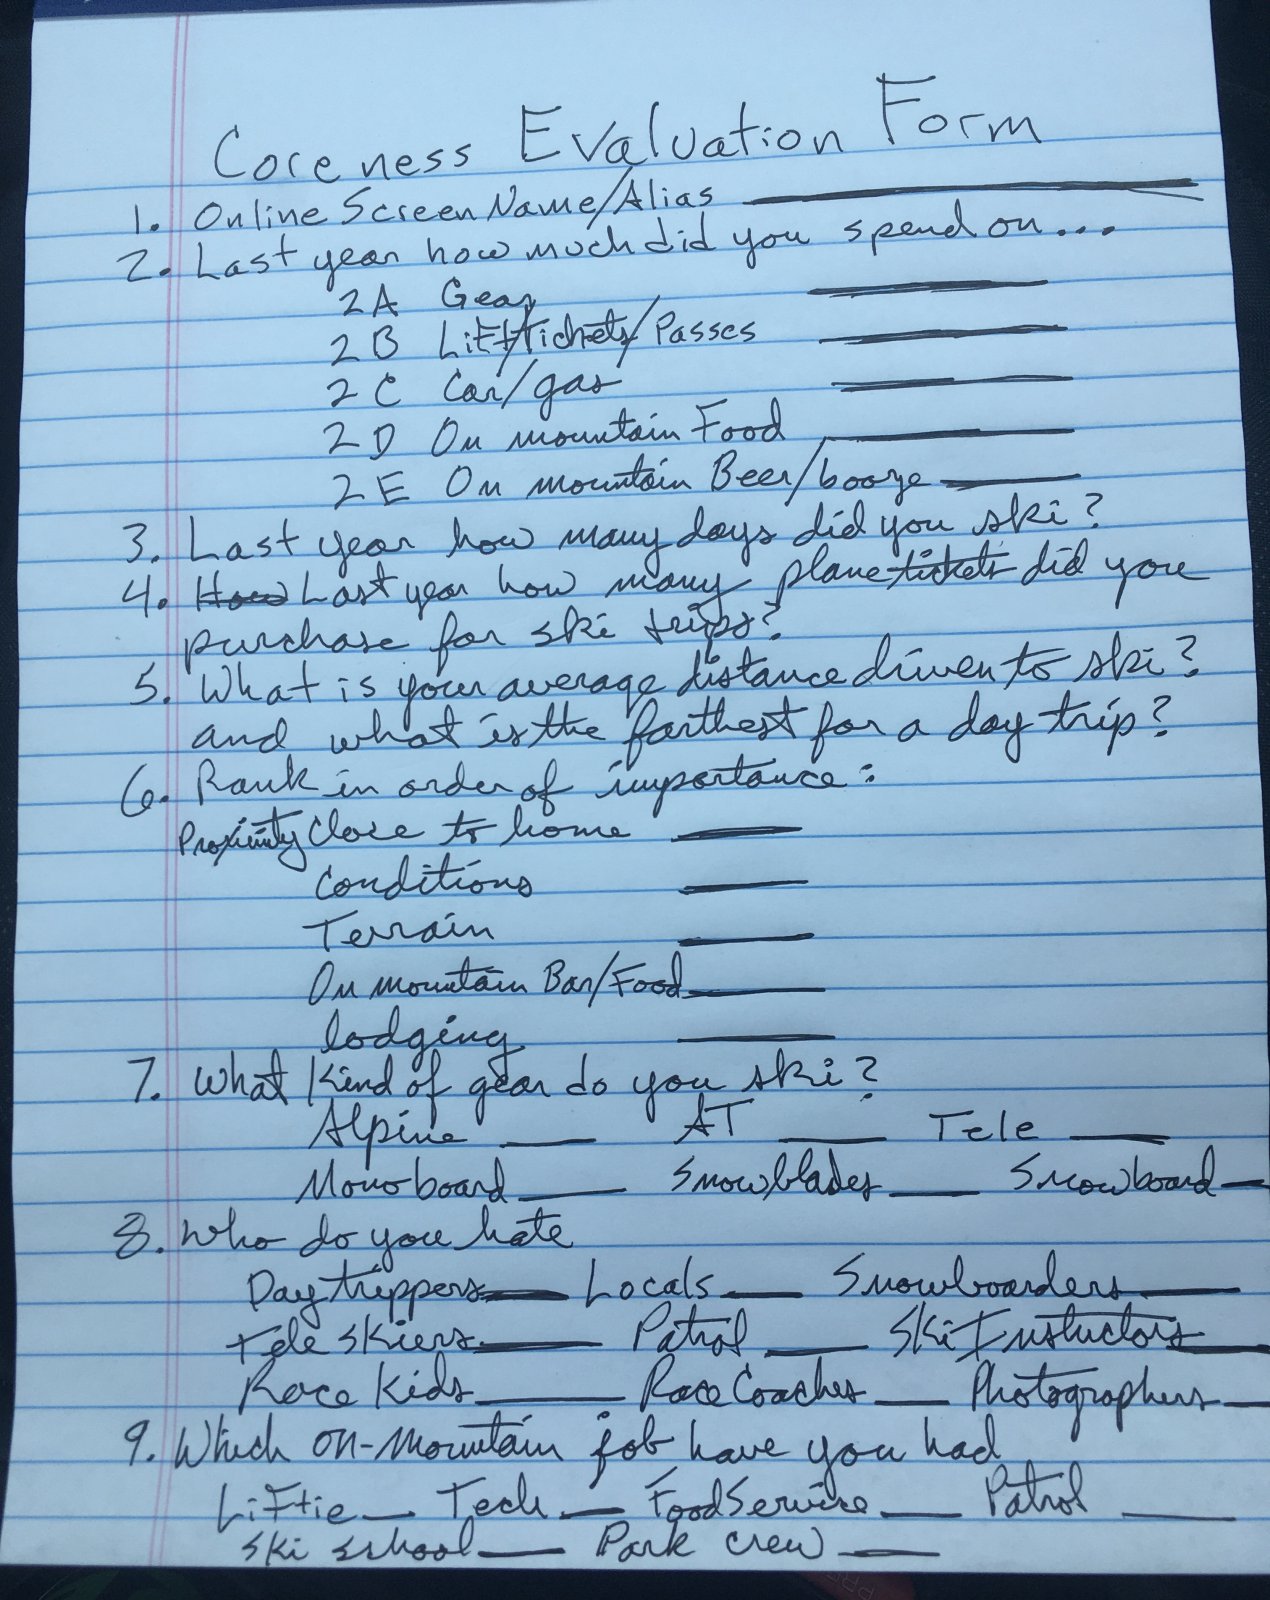 Coreness Evaluation Form
1. Online Screen Name/Alias
2. Last year how much did you spend on...
2A Gear
2B Lift/Tickets/Passes
2C Car/gas
2D On mountain Food
2E On mountain Beer/booze
3. Last year how many days did you ski?
4. How Last year how many plane tickets did you
purchase for ski trips?
5. What is your average distance driven to ski?
and what is the farthest for a day trip?
6. Rank in order of importance:
Proximity Close to home
Conditions
Terrain
On mountain Bar/Food
lodging
7. What kind of gear do you ski?
Alpine AT Tele
Monoboard Snowblades Snowboard
8. Who do you hate
Day trippers Locals Snowboarders
Tele skiers Patrol Ski Instuctors
Race Kids Race Coaches Photographers
9. Which on-mountain job have you had
Liftie Tech Food Service Patrol
Ski school Park crew